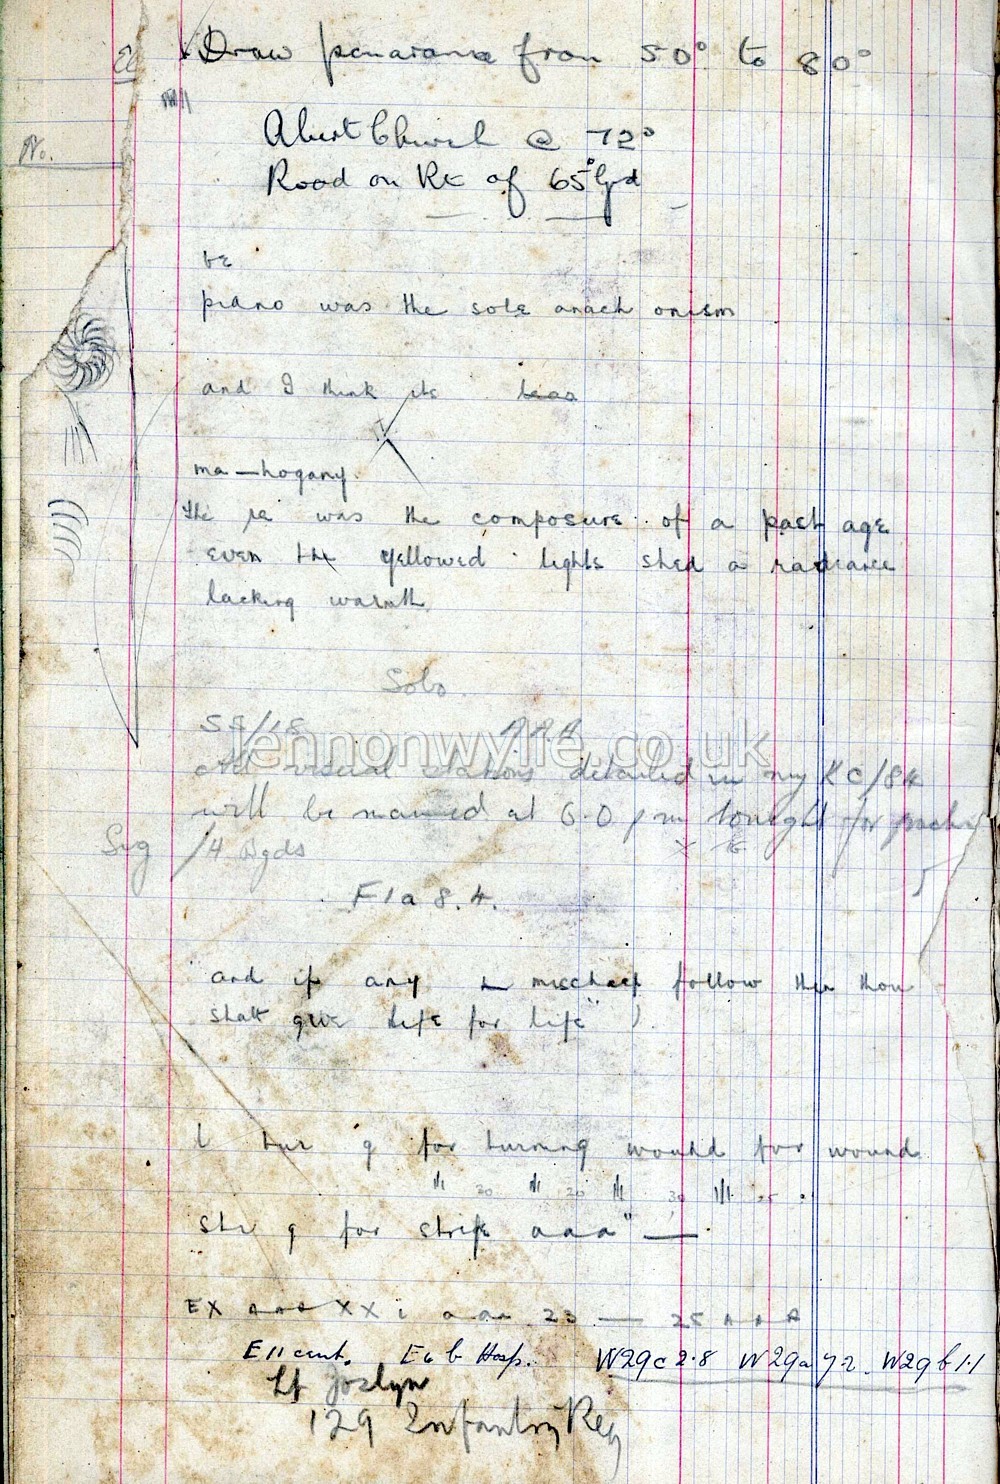 Draw panarama from 50° to 80°
Albert Church @ 72°
Road on Rt of 65° Grd
No.
be
piano was the sole anach onism
and I think its
ma—hogany.
The re was the composure of a past age
even the yellowed lights shed a radiance
lacking warmth
Sobo
SS/18 AAA
jennonwylie.co.uk
All visual stations detailed in my KC/84
will be manned at 6.0 pm tonight for
Sig /4 Bgds
F1a 8.4.
and if any mischief follow then thou
shalt give life for life" ).
bur g for burning wound for wound
" 20 " 20 " 30 "
Stri g for stripe aaa" —
EX XX i aaa 23 — 25 AAA
E11 cent. E6 b Hosp. W29c 2.8 W29a 7.2. W29b 1.1
Lt Joslyn
129 Infantry Reg